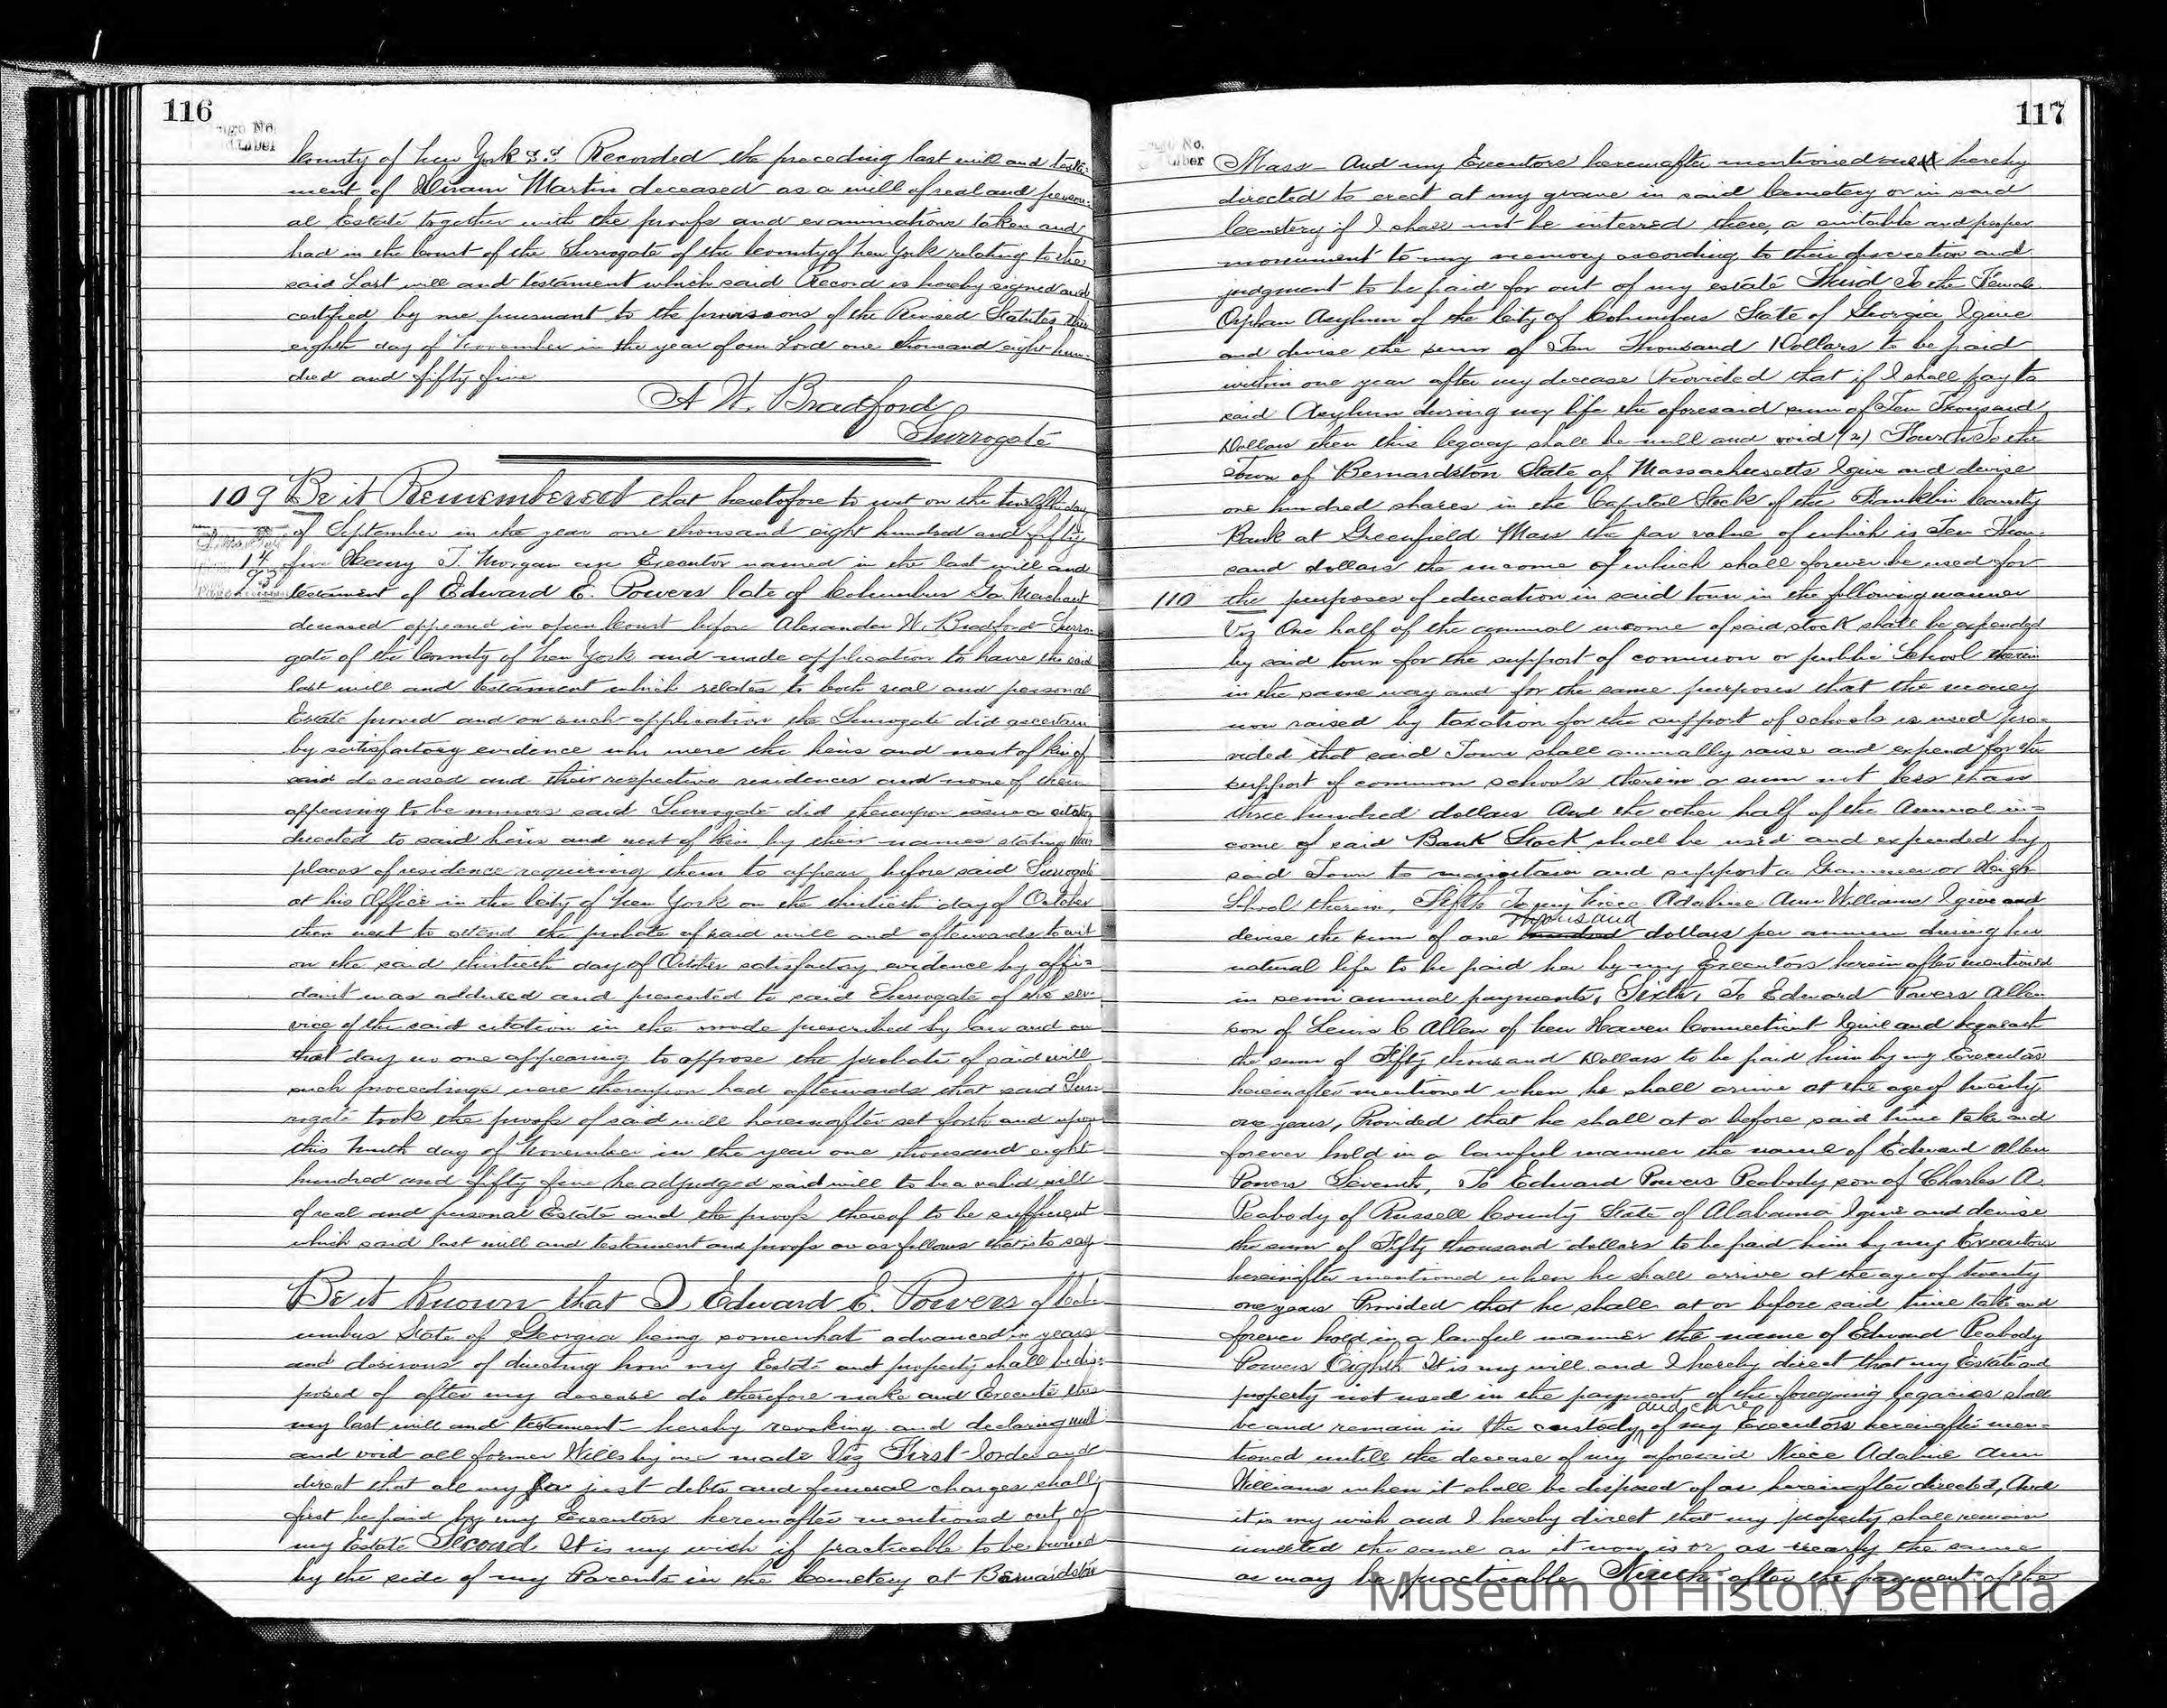 116
County of New York S.S. Recorded the preceding last will and testa-
ment of Hiram Martin deceased as a will of real and person-
al Estate together with the proofs and examinations taken and
had in the Court of the Surrogate of the County of New York relating to the
said Last will and testament which said Record is hereby signed and
certified by me pursuant to the provisions of the Revised Statutes this
eighth day of November in the year of our Lord one thousand eight hun-
dred and fifty five
A W. Bradford
Surrogate
109 Be it Remembered that heretofore to wit on the twelfth day
of September in the year one thousand eight hundred and fifty
five Henry T. Morgan an Executor named in the last will and
testament of Edward E. Powers late of Columbus Ga Merchant
deceased appeared in open Court before Alexander W. Bradford Surro-
gate of the County of New York and made application to have the said
last will and testament which relates to both real and personal
Estate proved and on such application the Surrogate did ascertain
by satisfactory evidence who were the heirs and next of kin of
said deceased and their respective residences and none of them
appearing to be minors said Surrogate did thereupon issue a citation
directed to said heirs and next of kin by their names stating their
places of residence requiring them to appear before said Surrogate
at his Office in the City of New York on the thirtieth day of October
then next to attend the probate of said will and afterwards to wit
on the said thirtieth day of October satisfactory evidence by affi-
davit was adduced and presented to said Surrogate of the ser-
vice of the said citation in the mode prescribed by law and on
that day no one appearing to oppose the probate of said will
such proceedings were thereupon had afterwards that said Sur-
rogate took the proofs of said will hereinafter set forth and upon
this day of November in the year one thousand eight
hundred and fifty five he adjudged said will to be a valid will
of real and personal Estate and the proofs thereof to be sufficient
which said last will and testament and proofs are as follows that is to say
Be it Known that I Edward E. Powers of Col-
umbus State of Georgia being somewhat advanced in years
and desirous of directing how my Estate and property shall be dis-
posed of after my decease do therefore make and Execute this
my last will and testament hereby revoking and declaring null
and void all former Wills by me made Viz First I order and
direct that all my just debts and funeral charges shall
first be paid by my Executors hereinafter mentioned out of
my Estate Second It is my wish if practicable to be buried
by the side of my Parents in the Cemetery at Bernardston
117
Mass And my Executors hereinafter mentioned are hereby
directed to erect at my grave in said Cemetery or in said
Cemetery if I shall not be interred there, a suitable and proper
monument to my memory according to their discretion and
judgment to be paid for out of my estate Third To the Female
Orphan Asylum of the City of Columbus State of Georgia I give
and devise the sum of Ten Thousand Dollars to be paid
within one year after my decease Provided that if I shall pay to
said Asylum during my life the aforesaid sum of Ten Thousand
Dollars then this legacy shall be null and void (2) Fourth To the
Town of Bernardston State of Massachusetts I give and devise
one hundred shares in the Capital Stock of the Franklin County
Bank at Greenfield Mass the par value of which is Ten Thou-
sand dollars the income of which shall forever be used for
110 the purposes of education in said town in the following manner
Viz One half of the annual income of said stock shall be expended
by said town for the support of common or public School therein
in the same way and for the same purposes that the money
now raised by taxation for the support of schools is used pro-
vided that said Town shall annually raise and expend for the
support of common schools therein a sum not less than
three hundred dollars And the other half of the Annual in-
come of said Bank Stock shall be used and expended by
said Town to maintain and support a Grammer or High
School therein, Fifth To my Niece Adaline Ann Williams I give and
devise the sum of one hundred thousand dollars per annum during her
natural life to be paid her by my Executors herein after mentioned
in semi annual payments, Sixth, To Edward Powers Allen
son of Lewis C Allen of New Haven Connecticut I give and bequeath
the sum of Fifty thousand Dollars to be paid him by my Executors
hereinafter mentioned when he shall arrive at the age of twenty
one years, Provided that he shall at or before said time take and
forever hold in a lawful manner the name of Edward Allen
Powers Seventh, To Edward Powers Peabody son of Charles A.
Peabody of Russell County State of Alabama I give and devise
the sum of Fifty thousand dollars to be paid him by my Executors
hereinafter mentioned when he shall arrive at the age of twenty
one years Provided that he shall at or before said time take and
forever hold in a lawful manner the name of Edward Peabody
Powers Eighth It is my will and I hereby direct that my Estate and
property not used in the payment of the foregoing legacies shall
be and remain in the custody and care of my Executors hereinafter men-
tioned untill the decease of my aforesaid Niece Adaline Ann
Williams when it shall be disposed of as hereinafter directed, And
it is my wish and I hereby direct that my property shall remain
invested the same as it now is or as nearly the same
as may be practicable Ninth after the payment of the
Museum of History Benicia